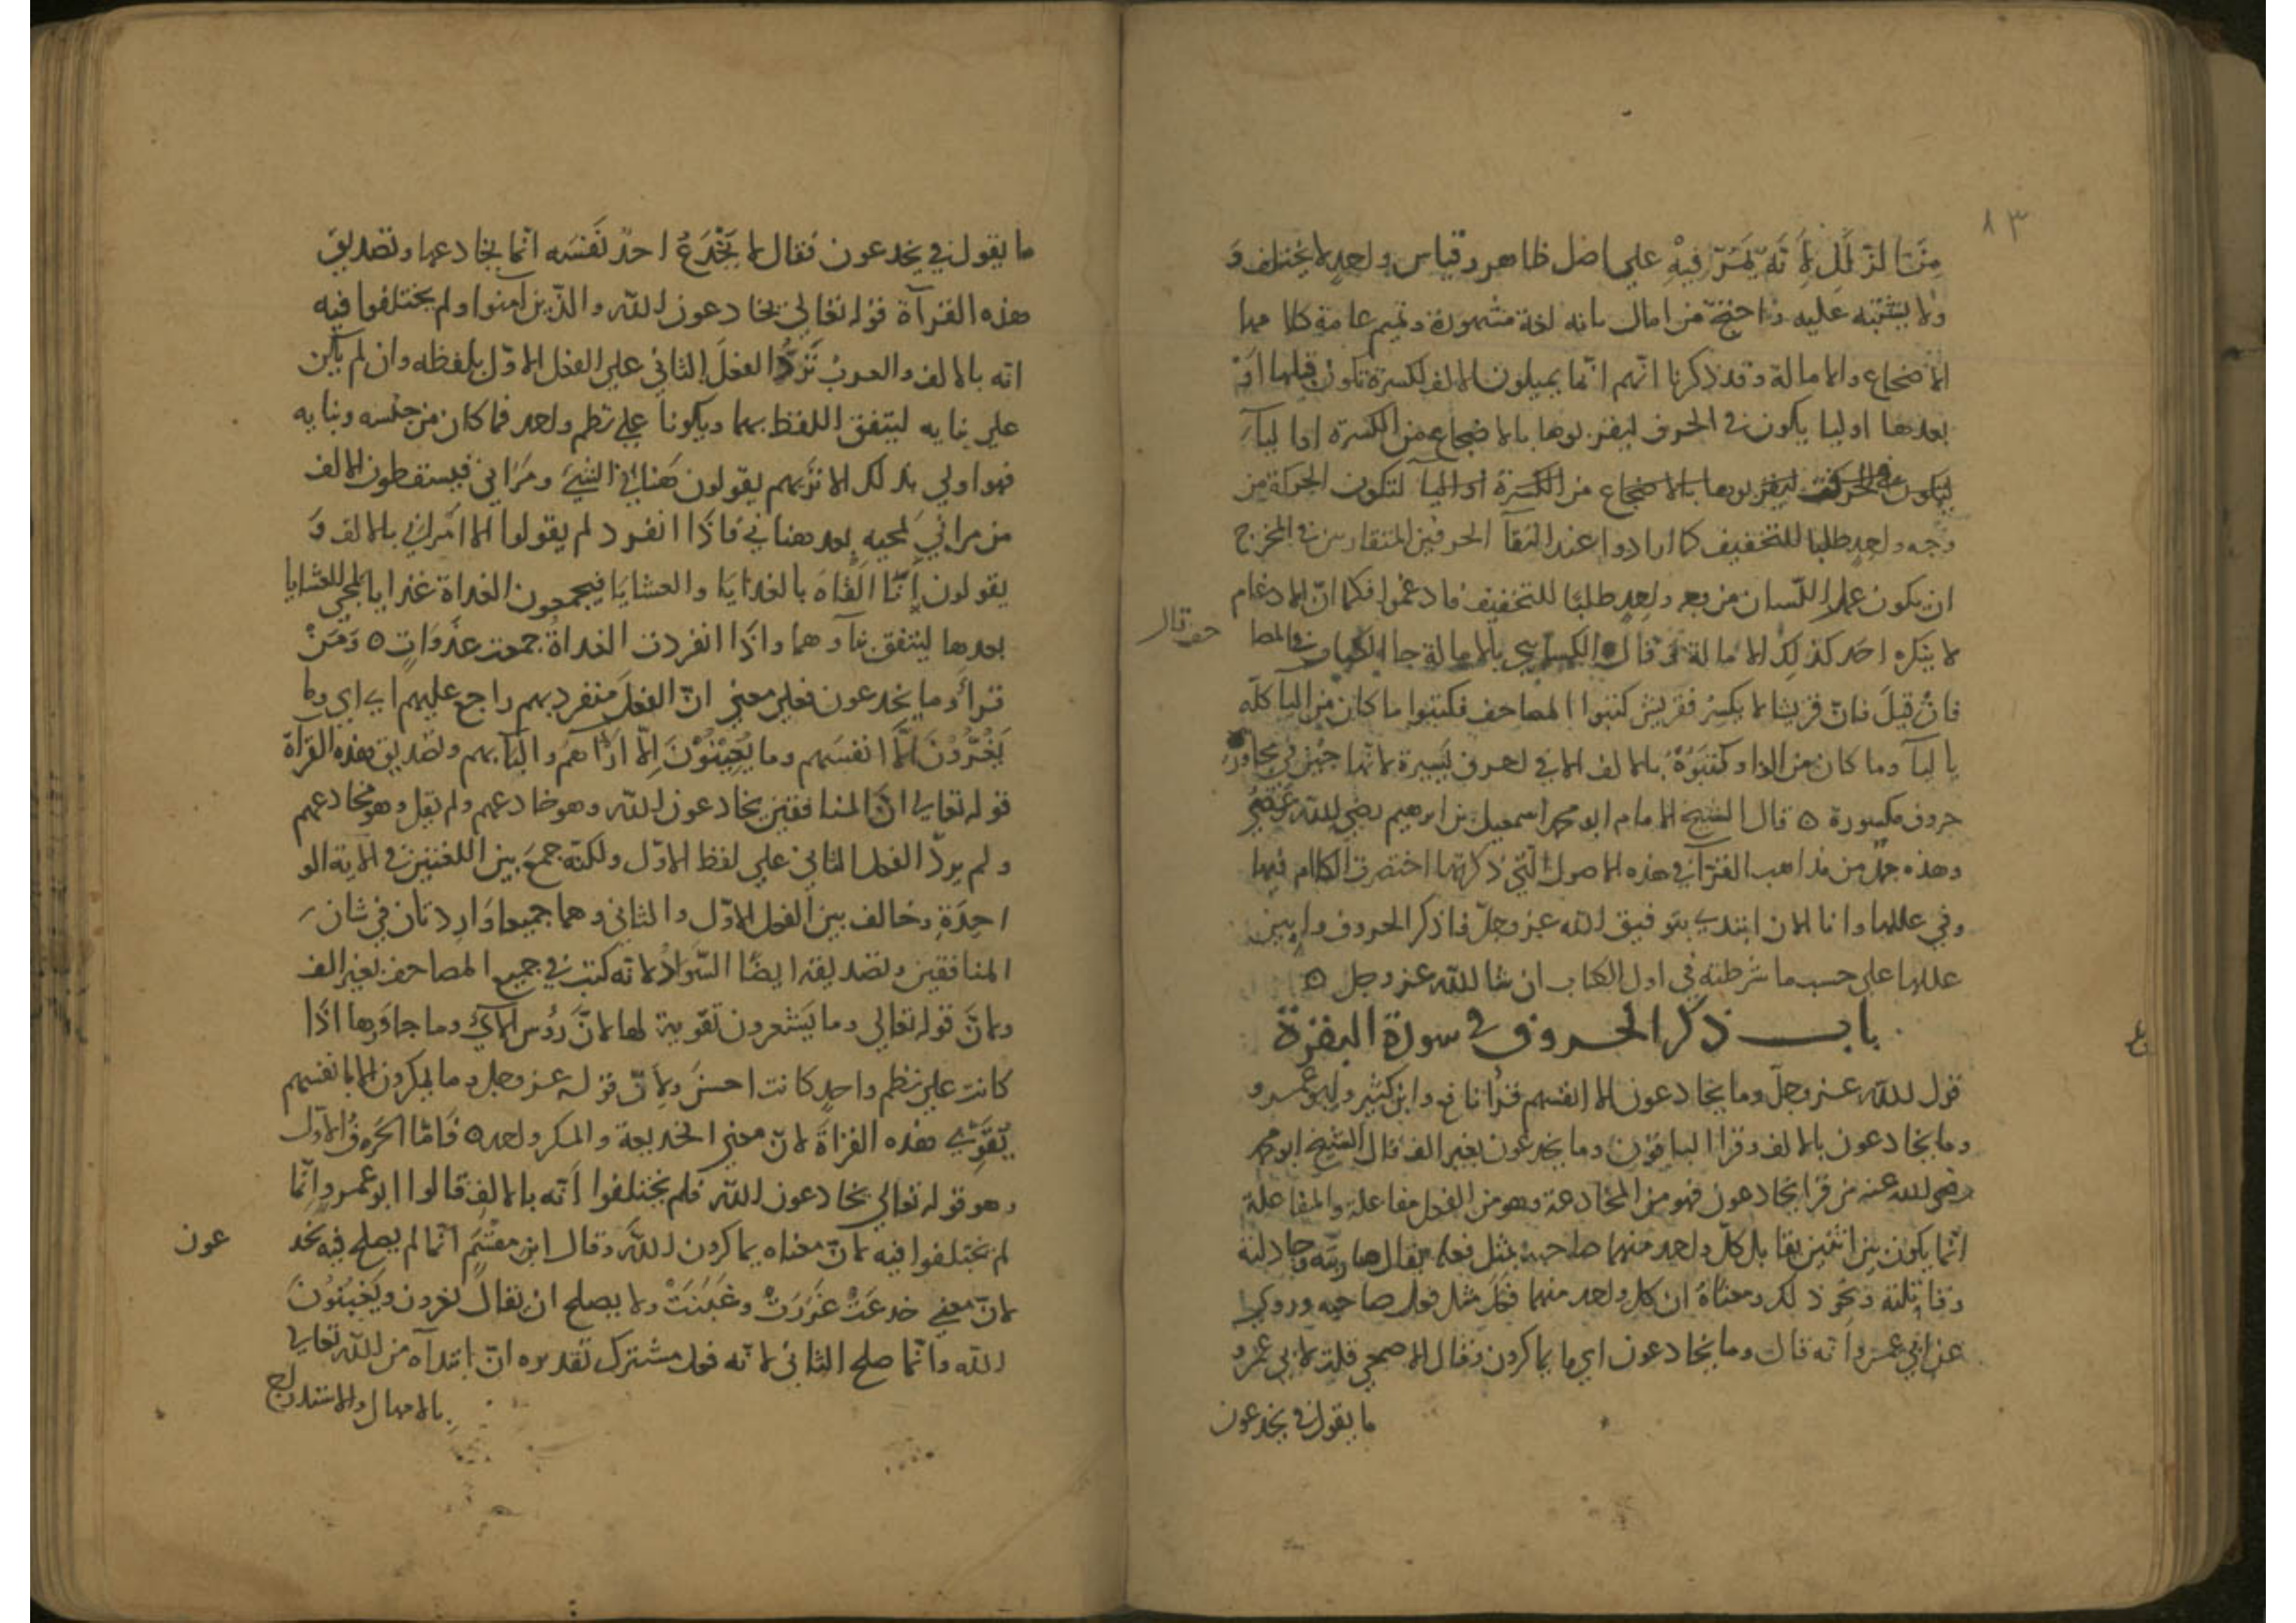 ٨٣
مِنَ الزلل لِأَنّه يَمُرّ فِيْهِ علي اصل ظاهر وقياس واحد لا يختلف وَ
ولا يشتبه عليه واحتجّ من امال بانه لغة مشهورة وتميم عامة كلامها
الاضجاع والامالة وقد ذكرنا انّهم انّما يميلون الالف لكسرة تكون قبلها اَوْ
بعدها او ليا يكون في الحرف ليقربوها بالاضجاع من الكسرة او اليآء
ليكون في الحرف ليقربوها بالاضجاع من الكسرة او اليآ لتكون الحركة من
وجه واحد طلبا للتخفيف كما ارادوا عند التقآ الحرفين المتقاربين في المخرج
ان يكون عمل اللّسان من وجه واحد طلبًا للتخفيف فادغموا فكما انّ الادغام
لا ينكره احد كذلك الامالة قال الكسائي بالامالة جا الكتاب في المصا
حف قال
فانْ قيلَ فانّ قريشا لا يكسِرُ فقريش كتبوا المصاحف فكتبوا ما كان من اليآ كلّه
باليآ وما كان من الواو كَتَبُوْهُ بالالف الا في احرف يَسيرة لانّها جيئ في مجاورة
حروف مكسورة ٥ قال الشيخ الامام ابو محمد اسمعيل بن ابرهيم رضي الله عنه
وهذه جمل من مذاهب القرّآ في هذه الاصول الّتي ذكرتها اختصرت الكلام فيها
وفي عللها وانا الان ابتدي بتوفيق الله عز وجلّ فاذكر الحروف وابين
عللها علي حسب ما شرطته في اول الكتاب ان شا الله عز وجل ٥
باب ذكر الحروف في سورة البقرة
قول الله عز وجلّ وما يخادعون الا انفسهم قرأ نافع وابن كثير وابو عمرو
وما يخادعون بالالف وقرا الباقون وما يخدعون بغير الف قال الشيخ ابو محمد
رضي الله عنه من قرا يخادعون فهو من المخادعة وهو من الفعل مفاعلة والمفاعلة
انّما يكون بين اثنين يقابل كلّ واحد منهما صاحبه بمثل فعله يقال حاربته وجادلته
وقاتلته ونحو ذلك ومعناهُ ان كل واحد منهما فَعَلَ مثل فعل صاحبه وروي
عن ابي عمرو انّه قال وما يخادعون اي ما يماكرون وقال الاصمعي قلت لابي عمرو
ما يقول في يخدعون
ما يقول في يخدعون فقال لا يَخْدَعُ احدٌ نَفْسَه انّما يخادعها وتصديق
هذه القرآة قوله تعالي يخادعون الله والّذين امنوا ولم يختلفوا فيه
انّه بالالف والعربُ تَرُدُّ الفعلَ الثاني علي الفعل الاوّل بلفظه وان لم يكن
علي بنايه ليتفق اللفظ بهما ويكونا علي نظم واحد فما كان من جنسه وبنايه
فهو اولي بذلك الا تَرَيهم يقولون هَنَاني الشيئُ ومَرَاني فيسقطون الالف
من مراني لمجيه بعد هناني فاذا انفرد لم يقولوا الا امراني بالالف وَ
يقولون إنّا الَقَاهُ بالغدايا والعشايا فيجمعون الغداة غدايا لمجي العشايا
بعدها ليتفق بناوهما واذا انفردت الغداةُ جمعت غَدَوَاتٍ ٥ وَمَنْ
قرأ وما يخدعون فعلي معني انّ الفعل منفرد بهم راجع عليهم اي وما
يَغُرُّوْنَ الّا انفسَهم وما يُخِيْبُوْنَ الّا اراهم والبابهم وتصديق هذه القرآة
قوله تعالي انّ المنافقين يخادعون الله وهو خادعهم ولم يقل وهو مخادعهم
ولم يردّ الفعل الثاني علي لفظ الاوّل ولكنّه جمعَ بين اللغتين في الاية الو
احِدَةِ وخالف بين الفعل الاوّل والثاني وهما جميعا وَارِدتان في شان
المنافقين وتصديقه ايضًا السَّوادُ لانّه كتب في جميع المصاحف بغير الف
ولانّ قوله تعالي وما يَشعرون تقوية لها لانّ رؤس الآي وما جاورها اذَا
كانت علي نظم واحدٍ كانت احسن ولانّ قوله عز وجل وما يمكرون الا بانفسهم
يُقَوِّي هذه القراةَ لانّ معني الخديعة والمكر واحد ٥ فَامّا الحَرفُ الاوّل
وهو قوله تعالي يخادعون الله فلم يختلفوا أنّه بالالف قالوا ابو عمرو وانّما
لم يختلفوا فيه لانّ معناه يماكرون الله وقال ابن مقسم انّما لم يصلح فيه يخد
عون
لانّ معني خدعَتْ غَرَرَتْ وغَبَنَتْ ولا يصلح ان يقال يغرون ويَغْبِنُوْنَ
الله وانّما صلح الثاني لانّه فعل مشترك تقديره انّ ابتدآه من الله تعالي
بالامهال والاستدراج